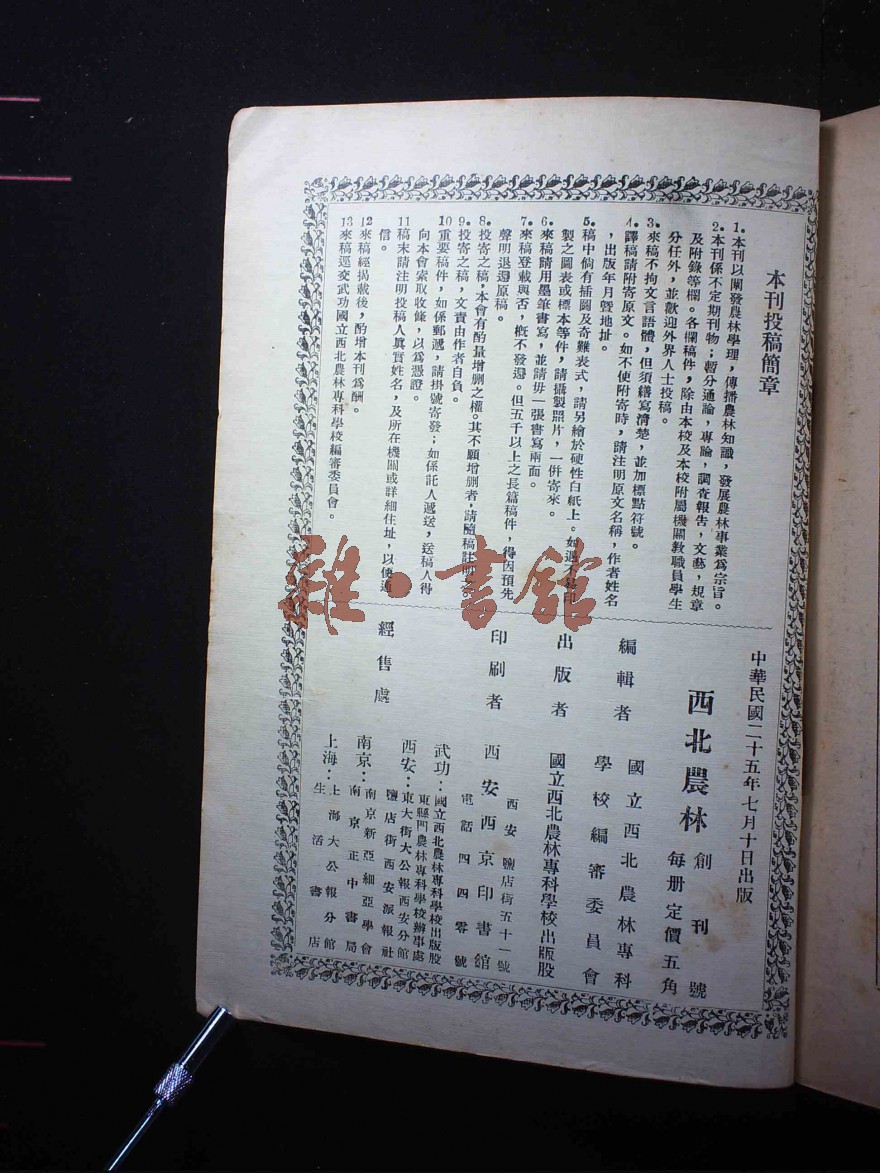 本刊投稿簡章
1.本刊以闡發農林學理，傳播農林知識，發展農林事業爲宗旨。
2.本刊係不定期刊物；暫分通論，專論，調查報告，文藝，規章
及附錄等欄。各欄稿件，除由本校及本校附屬機關教職員學生
分任外，並歡迎外界人士投稿。
3.來稿不拘文言語體，但須繕寫清楚，並加標點符號。
4.譯稿請附寄原文。如不便附寄時，請注明原文名稱，作者姓名
，出版年月暨地址。
5.稿中倘有插圖及奇難表式，請另繪於硬性白紙上。如遇不易印
製之圖表或標本等件，請攝製照片，一併寄來。
6.來稿請用墨筆書寫，並請毋一張書寫兩面。
7.來稿登載與否，槪不發還。但五千以上之長篇稿件，得因預先
聲明退還原稿。
8.投寄之稿，本會有酌量增删之權。其不願增删者，請隨稿註明。
9.投寄之稿，文責由作者自負。
10重要稿件，如係郵遞，請掛號寄發；如係託人遞送，送稿人得
向本會索取收條，以爲憑證。
11稿末請注明投稿人眞實姓名，及所在機關或詳細住址，以便通
信。
12來稿經揭載後，酌增本刊爲酬。
13來稿逕交武功國立西北農林專科學校編審委員會。
中華民國二十五年七月十日出版
西北農林 創刊號
每册定價五角
編輯者 國立西北農林專科
學校編審委員會
出版者 國立西北農林專科學校出版股
印刷者 西安西京印書館
西安鹽店街五十一號
電話四四零號
經售處
武功：國立西北農林專科學校出版股
西安：東縣門農林專科學校辦事處
東大街大公報西安分館
鹽店街西安派報社
南京：南京新亞細亞學會
南京正中書局
上海：上海大公報分館
生活書店
雜·書館